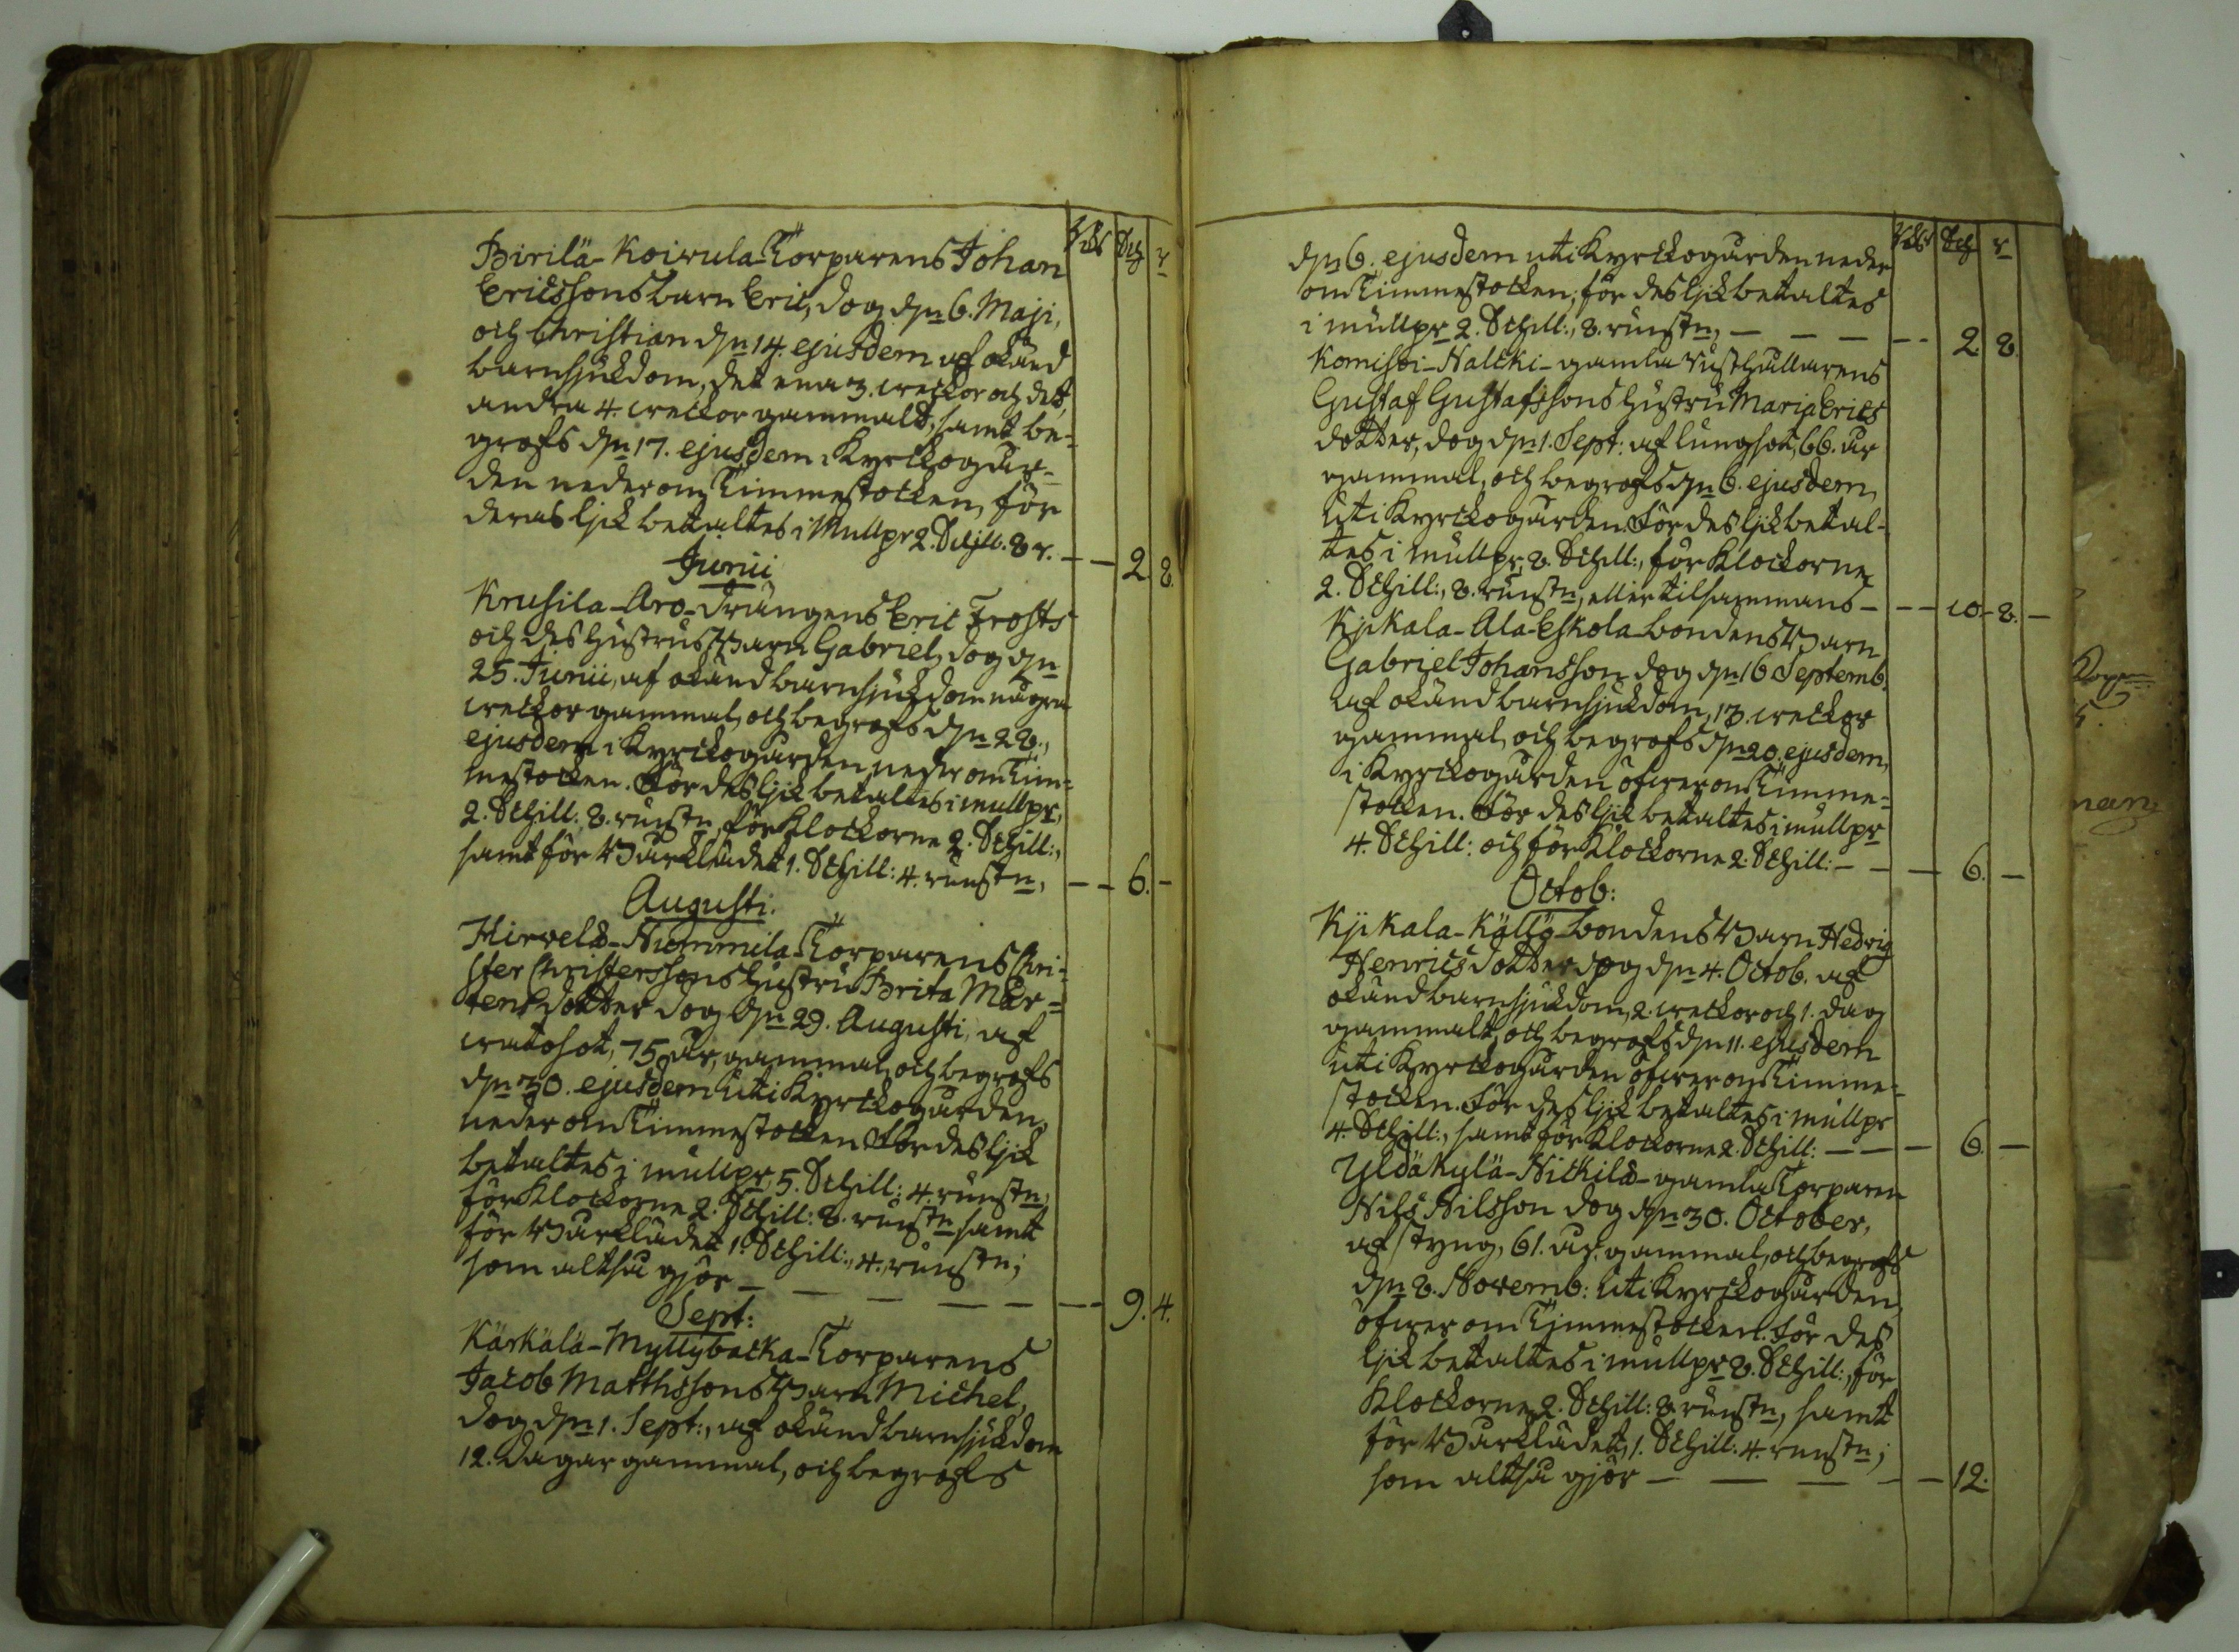 Rdr Sch r
Birilä-Koirula Torparens Johan
Ericssons barn Eric, dog d:n 6. Maji,
och Christian d:n 14. ejusdem af okänd
barnsjukdom, det ena 3. weckor och det
andra 4. weckor gammalt, samt be-
grofs d:n 17. ejusdem i Kyrckogår-
den neder om Timmestocken, för
deras lijk betaltes i Mullpr 2. Schill. 8 r. - - 2 8.
Junii
Krusila-Aro-Drängens Eric Frosts
och des Hustrus Barn Gabriel, dog d:n
25. Junii, af okänd barnsjukdom några
weckor gammal, och begrofs d:n 28.,
ejusdem i Kyrckogården neder om Tim-
mestocken. För des lijk betaltes i mullpr,
2. Schill: 8. runst:n, för Klockorne 2. Schill:,
samt för Bårklädet 1. Schill: 4. runst:n, - - 6. -
Augusti.
Hirvelä-Nummila Torparens Chri-
ster Christerssons Hustru Brita Mår-
tensdotter dog d:n 29. Augusti, af
watusot, 75 år gammal, och begrofs
d:n 30. ejusdem uti Kyrckogården,
neder om Timmestocken För des lijk
betaltes i mullpr, 5. Schill: 4. runst:n,
för Klockorne 2. Schill: 8. runst:n samt
för Bårklädet 1. Schill:, 4., runst:n;
som altså gjör - - - - - - - 9. 4.
Sept:
Kärkälä-Myllybacka-Torparens
Jacob Matthssons Barn Michel,
dog d:n 1. Sept:, af okänd barnsjukdom
12. Dagar gammal, och begrofs
Rdr Sch r
d:n 6. ejusdem uti Kyrckogården neder
om Timmestocken; för des lijk betaltes
i mullpr 2. Schill:, 8. runst:n, - - - - - 2 8.
Komissi-Nalcki-gamla Rusthållarens
Gustaf Gustafssons Hustru Maria Erics
dotter, dog d:n 1. Sept: af lungsot, 66. år
gammal, och begrofs d:n 6. ejusdem,
uti Kyrckogården. För des lijk betal-
tes i mullpr, 8. Schill:, för Klockorne
2. Schill:, 8. runst:n, eller tilsammans - - - 10 - 8. -
Kijkala-Ala-Eskola-bondens Barn
Gabriel Johansson dog d:n 16 Septemb.
af okänd barnsjukdom, 13. weckor
gammal, och begrofs d:n 20. ejusdem,
i Kyrckogården öfwer om Timme-
stocken. För des lijk betaltes i mullpr
4. Schill: och för Klockorne 2. Schill: - - - 6. -
Octob:
Kijkala-Källö-bondens Barn Hedvig
Henricsdotter dog d:n 4. Octob. af
okänd barnsjukdom, 2. weckor och 1. dag
gammalt, och begrofs d:n 11. ejusdem
uti Kyrckogården öfwer om Timme-
stocken. För des lijk betaltes i mullpr
4. Schill:, samt för Klockorne 2. Schill: - - - 6. -
Ylöäkylä-Nickilä-gamla Torparen
Nils Nilsson dog d:n 30. October,
af styng, 61. år gammal, och begrofs
d:n 8. Novemb: uti Kyrckogården,
öfwer om Timmestocken. För des
lijk betaltes i mullpr 8. Schill:, för
Klockorne 2. Schill: 8 runst:n, samt
för Bårklädet, 1. Schill: 4. runst:n;
som altså gjör - - - - - 12.